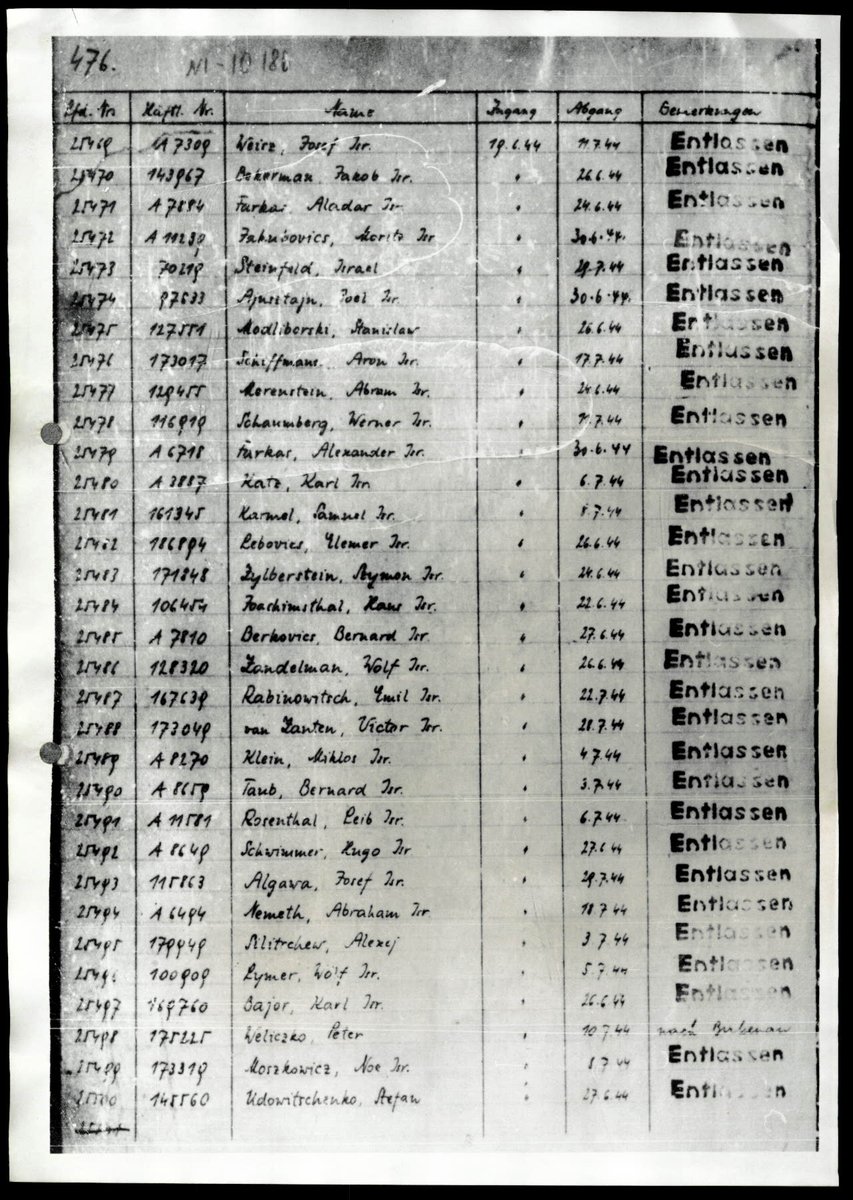 476. NI-10186
Lfd. Nr. Häftl. Nr. Name Zugang Abgang Bemerkungen
25469 A 7309 Weisz, Josef Isr. 19.6.44 11.7.44 Entlassen
25470 143967 Bekerman, Jakob Isr. " 26.6.44 Entlassen
25471 A 7884 Farkas, Aladar Isr. " 24.6.44 Entlassen
25472 A 11239 Jakubovics, Moritz Isr " 30.6.44. Entlassen
25473 70219 Steinfeld, Israel " 29.7.44 Entlassen
25474 97533 Ajnsztajn, Joel Isr. " 30.6.44. Entlassen
25475 127551 Modliborski, Stanislaw " 26.6.44 Entlassen
25476 173017 Schiffmans, Aron Isr. " 17.7.44 Entlassen
25477 129455 Morenstein, Abram Isr. " 24.6.44 Entlassen
25478 116919 Schaumberg, Werner Isr. " 11.7.44 Entlassen
25479 A 6718 Farkas, Alexander Isr. " 30.6.44 Entlassen
25480 A 3887 Katz, Karl Isr " 6.7.44 Entlassen
25481 161345 Karmel, Samuel Isr. " 8.7.44 Entlassen
25482 186894 Lebovics, Elemer Isr. " 26.6.44 Entlassen
25483 171848 Zylberstein, Szymon Isr. " 24.6.44 Entlassen
25484 106454 Joachimsthal, Hans Isr. " 22.6.44 Entlassen
25485 A 7810 Berkovics, Bernard Isr " 27.6.44 Entlassen
25486 128320 Zandelman, Wolf Isr. " 26.6.44 Entlassen
25487 167639 Rabinowitsch, Emil Isr. " 22.7.44 Entlassen
25488 173049 van Zanten, Victor Isr. " 28.7.44 Entlassen
25489 A 8270 Klein, Miklos Isr. " 4.7.44 Entlassen
25490 A 8659 Taub, Bernard Isr. " 3.7.44 Entlassen
25491 A 11581 Rosenthal, Leib Isr. " 6.7.44 Entlassen
25492 A 8649 Schwimmer, Hugo Isr " 27.6.44 Entlassen
25493 115863 Algawa, Josef Isr. " 29.7.44 Entlassen
25494 A 6494 Nemeth, Abraham Isr " 18.7.44 Entlassen
25495 179949 Alexej " 3.7.44 Entlassen
25496 100909 Lymer, Wolf Isr. " 5.7.44 Entlassen
25497 169760 Bajor, Karl Isr. " 26.6.44 Entlassen
25498 175225 Weliczko, Peter " 10.7.44 nach Birkenau
25499 173319 Moszkowicz, Noe Isr. " 8.7.44 Entlassen
25500 145560 Udowitschenko, Stefan " 27.6.44 Entlassen